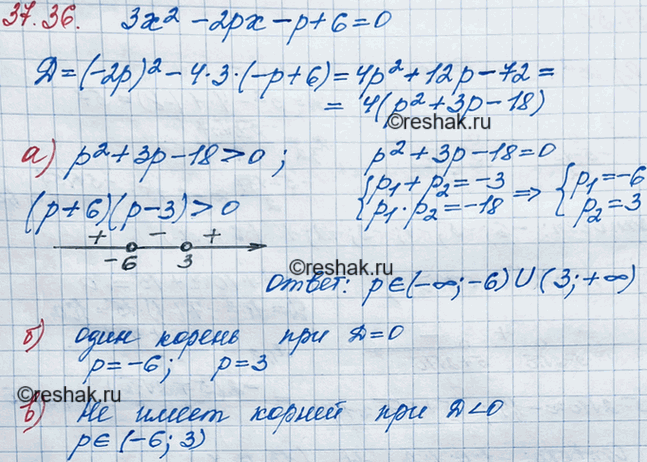 37.36. 3x² - 2px - p + 6 = 0
D = (-2p)² - 4·3·(-p+6) = 4p² + 12p - 72 =
= 4(p² + 3p - 18)
©reshak.ru
а) p² + 3p - 18 > 0; p² + 3p - 18 = 0
(p+6)(p-3) > 0 {p₁ + p₂ = -3 p₁·p₂ = -18 ⇒ {p₁ = -6 p₂ = 3
+ - +
-6 3
©reshak.ru
Ответ: p∈(-∞; -6)∪(3; +∞)
б) один корень при D=0
p = -6; p = 3
©reshak.ru
в) Не имеет корней при D<0
p∈(-6; 3)